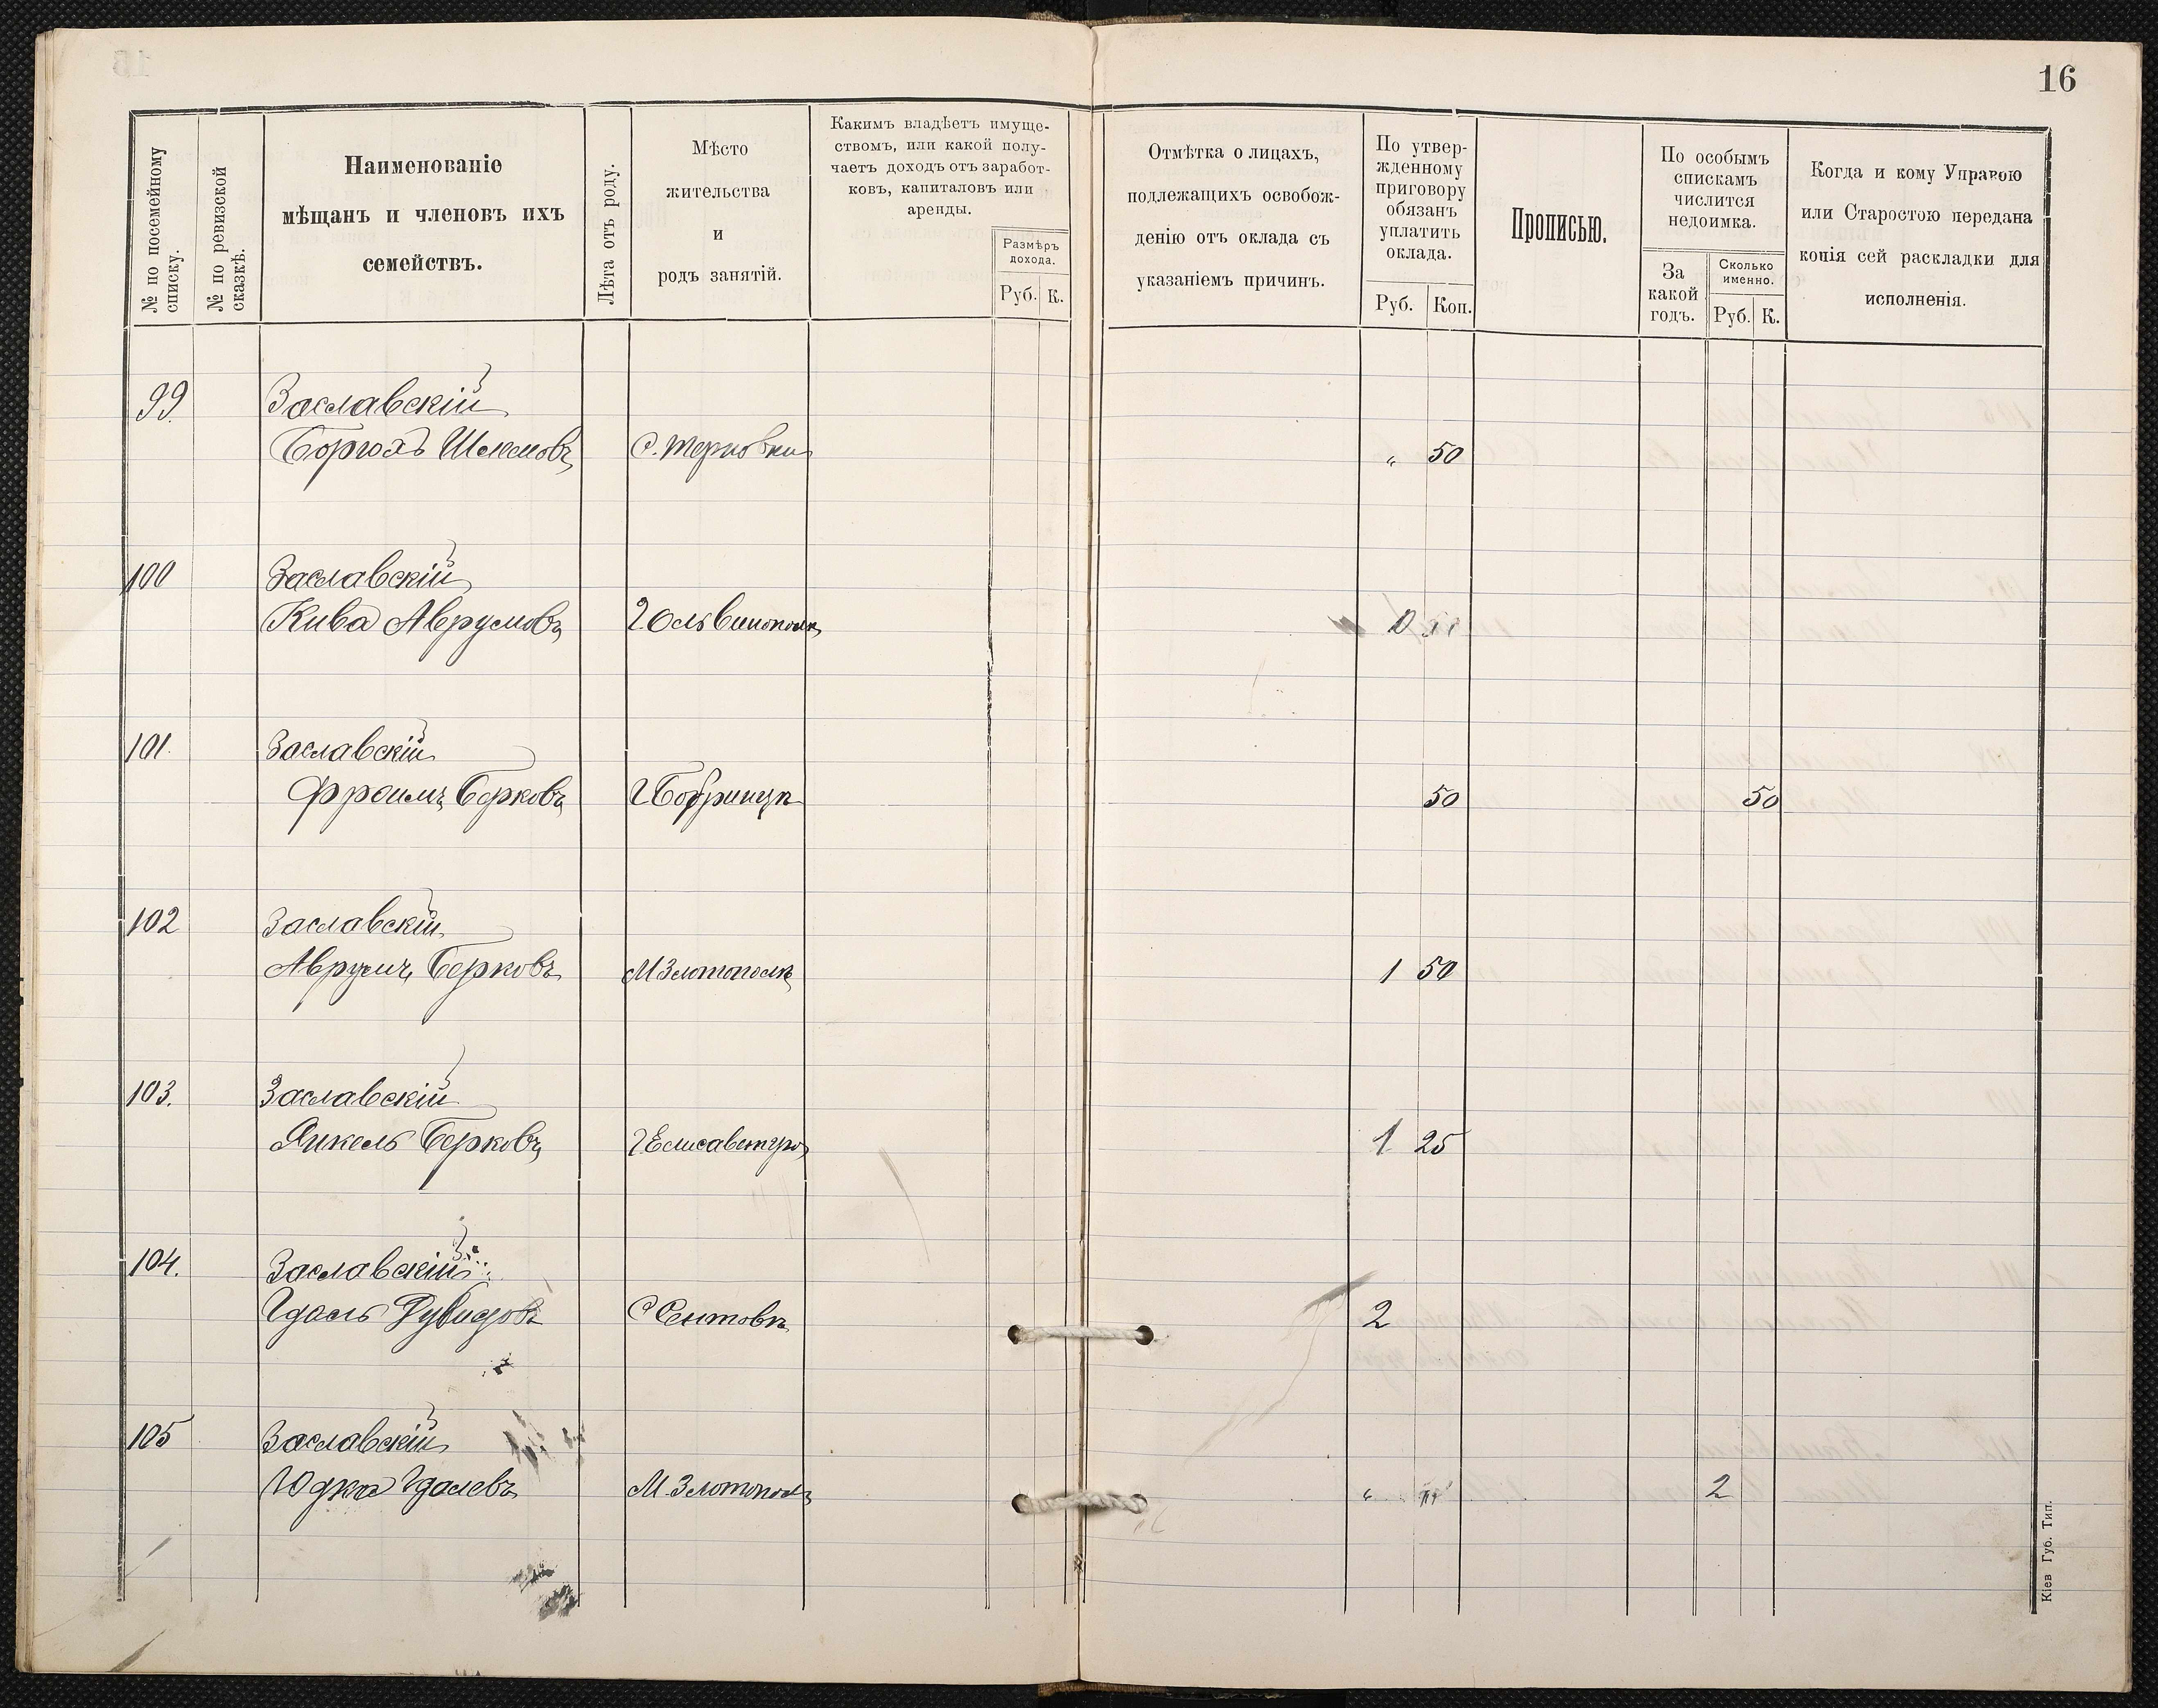 16
№ по посемейному списку.
№ по ревизской сказкѣ.
Наименованіе
мѣщанъ и членовъ ихъ
семействъ.
Лѣта отъ роду.
Мѣсто
жительства
и
родъ занятій.
Какимъ владѣетъ имуще-
ствомъ, или какой полу-
чаетъ доходъ отъ заработ-
ковъ, капиталовъ или
аренды.
Размѣръ
дохода.
Руб. К.
Отмѣтка о лицахъ,
подлежащихъ освобож-
денію отъ оклада съ
указаніемъ причинъ.
По утвер-
жденному
приговору
обязанъ
уплатить
оклада.
Руб. Коп.
Прописью.
По особымъ
спискамъ
числится
недоимка.
За
какой
годъ.
Сколько
именно.
Руб. К.
Когда и кому Управою
или Старостою передана
копія сей раскладки для
исполненія.
99. Заславскій
Шлемовъ С. Терновки " 50
100 Заславскій
Кива Аврумовъ Г Ольвиополь
101. Заславскій
Фроимъ Берковъ Г Бобринецъ 50 50
102 Заславскій
Аврумъ Берковъ М Златополь 1 50
103. Заславскій
Янкель Берковъ Г Елисаветгр 1 25
104. Заславскій
Гдаль С Сентовъ 2
105 Заславскій
Юдка Гдалевъ М. Златополь " " 2
Кіев Губ. Тип.